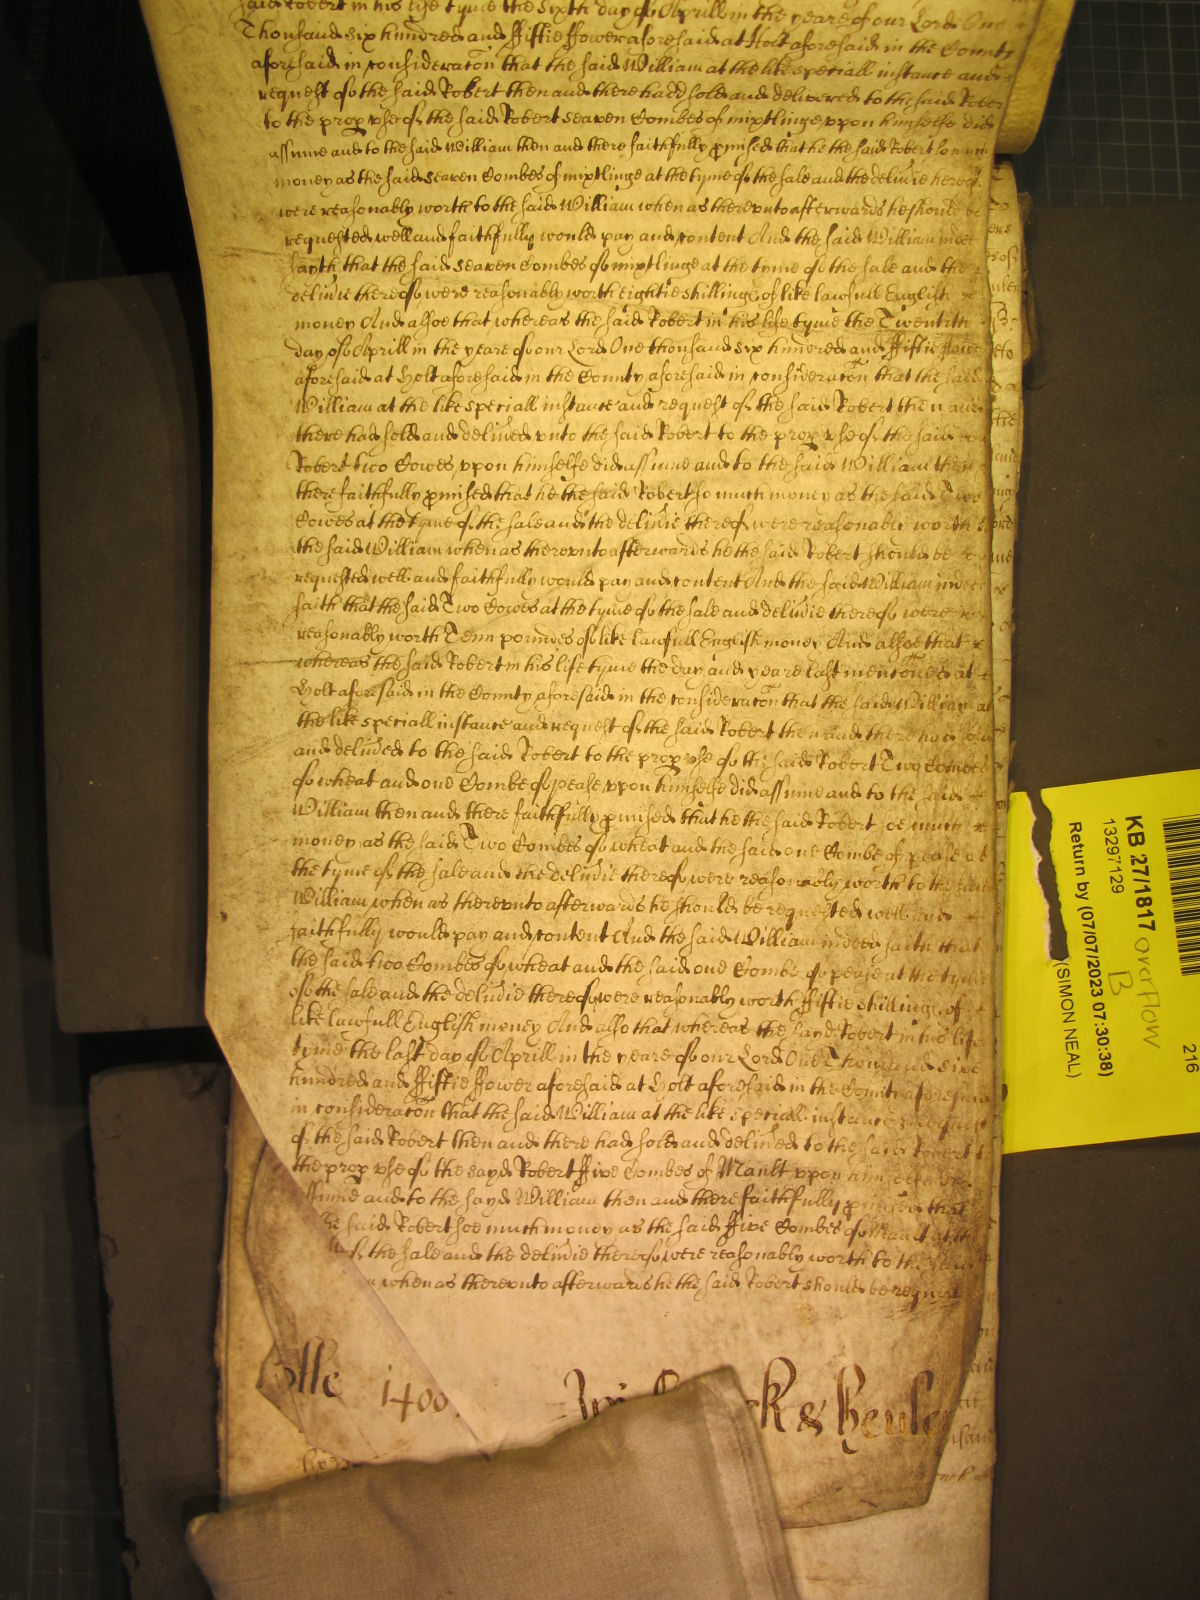 said Robert in his life tyme the Sixth day of Aprill in the yeare of our Lord One
Thousand six hundred and ffiftie ffower aforesaid at Holt aforesaid in the County
aforesaid in consideracon that the said William at the like speciall instance and
request of the said Robert then and there hadd sold and delivered to the said Rober
to the prop vse of the said Robert Seaven Combes of mixtlinge vpon himselfe did
assume and to the said William then and there faithfully pmised that he the said Robert so much
money as the said Seaven Combes of mixtlinge at the tyme of the sale and the deliuie hereof
were reasonably worth to the said William when as therevnto afterwards he should be
requested well and faithfully would pay and content And the said William indee
sayth that the said Seaven Combes of mixtlinge at the tyme of the sale and the
deliuie thereof were reasonably worth eightie shillings of like lawfull English
money And alsoe that whereas the said Robert in his life tyme the Twentith
day of Aprill in the yeare of our Lord One thousand six hundred and ffiftie ffower
aforesaid at Holt aforesaid in the County aforesaid in consideracon that the said
William at the like speciall instance and request of the said Robert then and
there had sold and deliued vnto the said Robert to the prop vse of the said
Robert two Cowes vpon himselfe did assume and to the said William then
there faithfully pmised that he the said Robert so much money as the said Two
Cowes at the tyme of the sale and the deliuie thereof were reasonably worth
the said William when as therevnto afterwards he the said Robert should be
requested well and faithfully would pay and content And the said William indee
saith that the said Two Cowes at the tyme of the sale and deliuie thereof were
reasonably worth Tenn poundes of like lawfull English money And alsoe that
whereas the said Robert in his life tyme the day and yeare last mentoned at
Holt aforesaid in the County aforesaid in the consideracon that the said William at
the like speciall instance and request of the said Robert then and there had sold
and deliued to the said Robert to the prop vse of the said Robert Two Combes
of wheat and one Combe of pease vpon himselfe did assume and to the said
William then and there faithfully pmised that he the said Robert soe much
money as the said Two Combes of wheat and the said one Combe of pease at
the tyme of the sale and the deliuie thereof were reasonably worth to the said
William when as therevnto afterwards he should be requested well and
faithfully would pay and content And the said William indeed saith that
the said two Combes of wheat and the said one Combe of pease at the tyme
of the sale and the deliuie thereof were reasonably worth ffiftie shillings of
like lawfull English money And also that whereas the sayd Robert in his life
tyme the last day of Aprill in the yeare of our Lord One Thousand sixe
hundred and ffiftie ffower aforesaid at Holt aforesaid in the County aforesaid
in consideracon that the said William at the like speciall instance and request
of the said Robert then and there had sold and deliued to the said Robert
the prop vse of the sayd Robert ffive Combes of Mault vpon himselfe
assume and to the sayd William then and there faithfully pmised that
he said Robert soe much money as the said ffive Combes of Mault at the
of the sale and the deliuie thereof were reasonably worth to the said
when as therevnto afterwards he the said Robert should be request
olle 1400
ck & Henley
KB 27/1817 overflow
B
13297129
Return by (07/07/2023 07:30:38)
(SIMON NEAL)
216